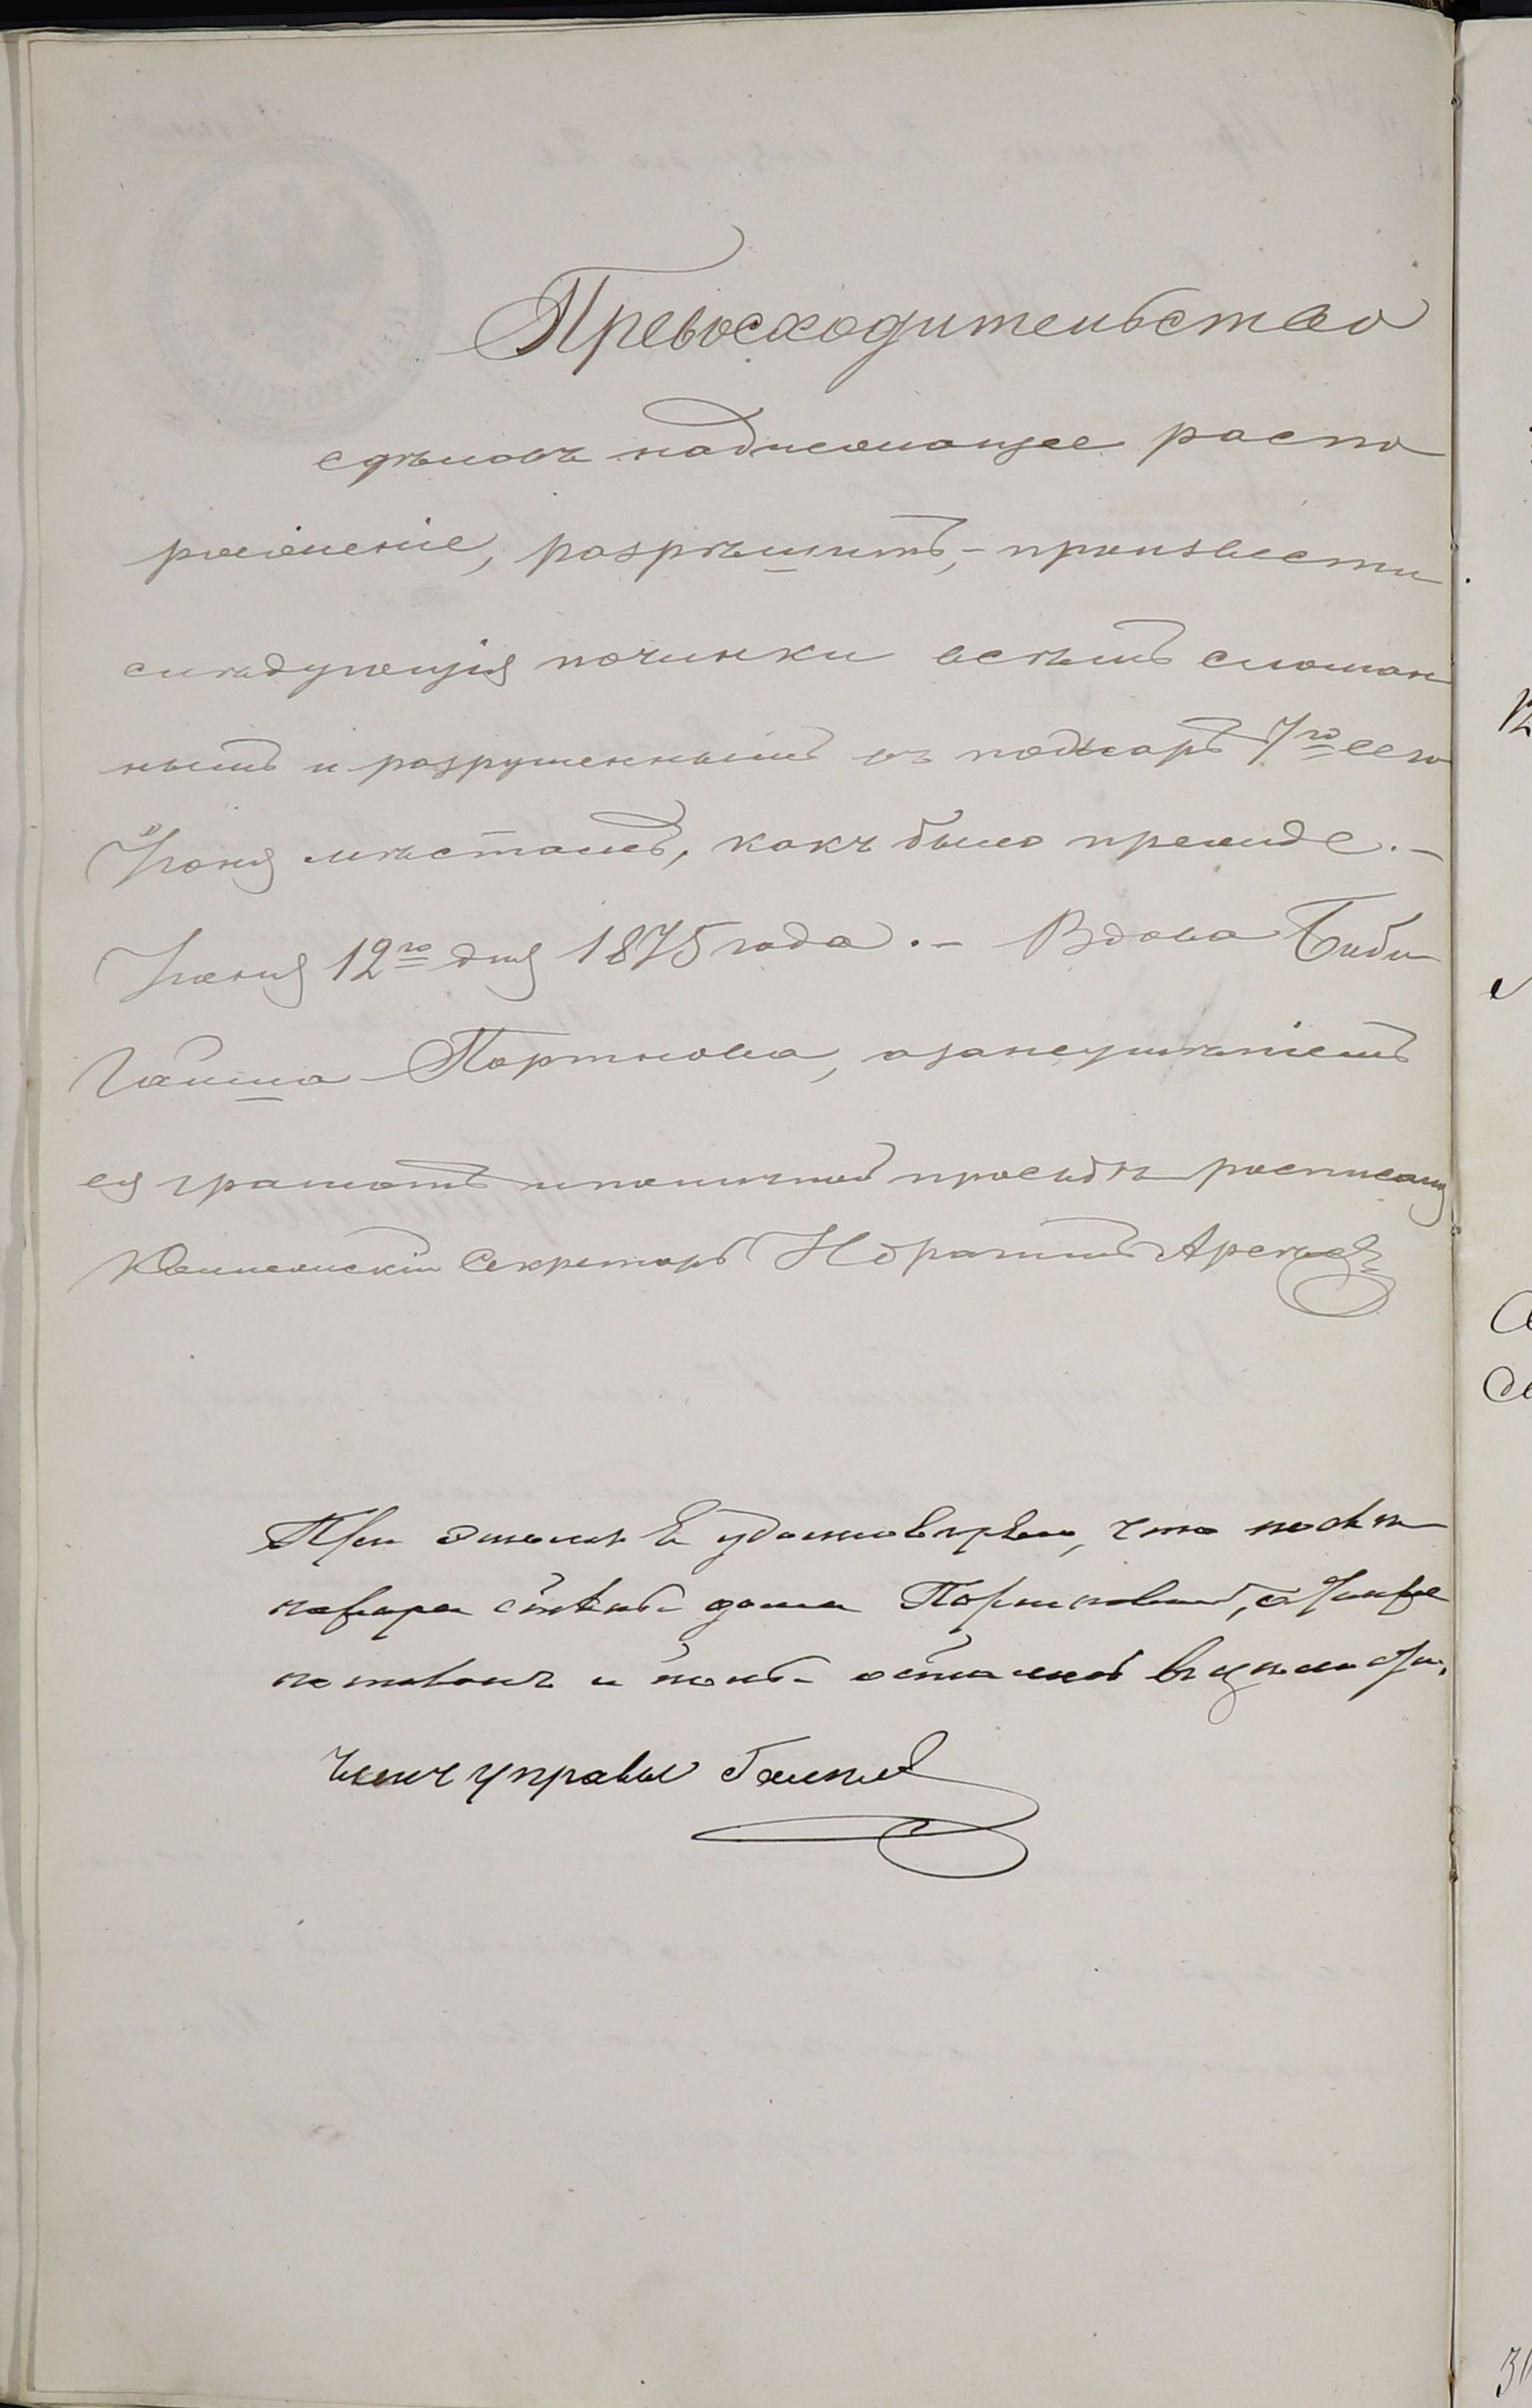 Превосходительство
сдѣлавъ надлежащее распо
ряженіе, разрѣшитъ, - произвести
слѣдующія починки всѣмъ сломан
нымъ и разрушеннымъ въ пожаръ 7го сего
Іюня мѣстамъ, какъ было прежде. -
Іюня 12го дня 1875 года. - Вдова Биби
Гайша Портнова, а за неумѣніемъ
ея грамотѣ и по личной просьбѣ росписался
Коллежскій Секретарь Ибрагимъ
При этомъ удостовѣряю, что послѣ
пожара стѣны дома Портновой, а также
потолокъ и полъ остались въ цѣлости.
Членъ управы